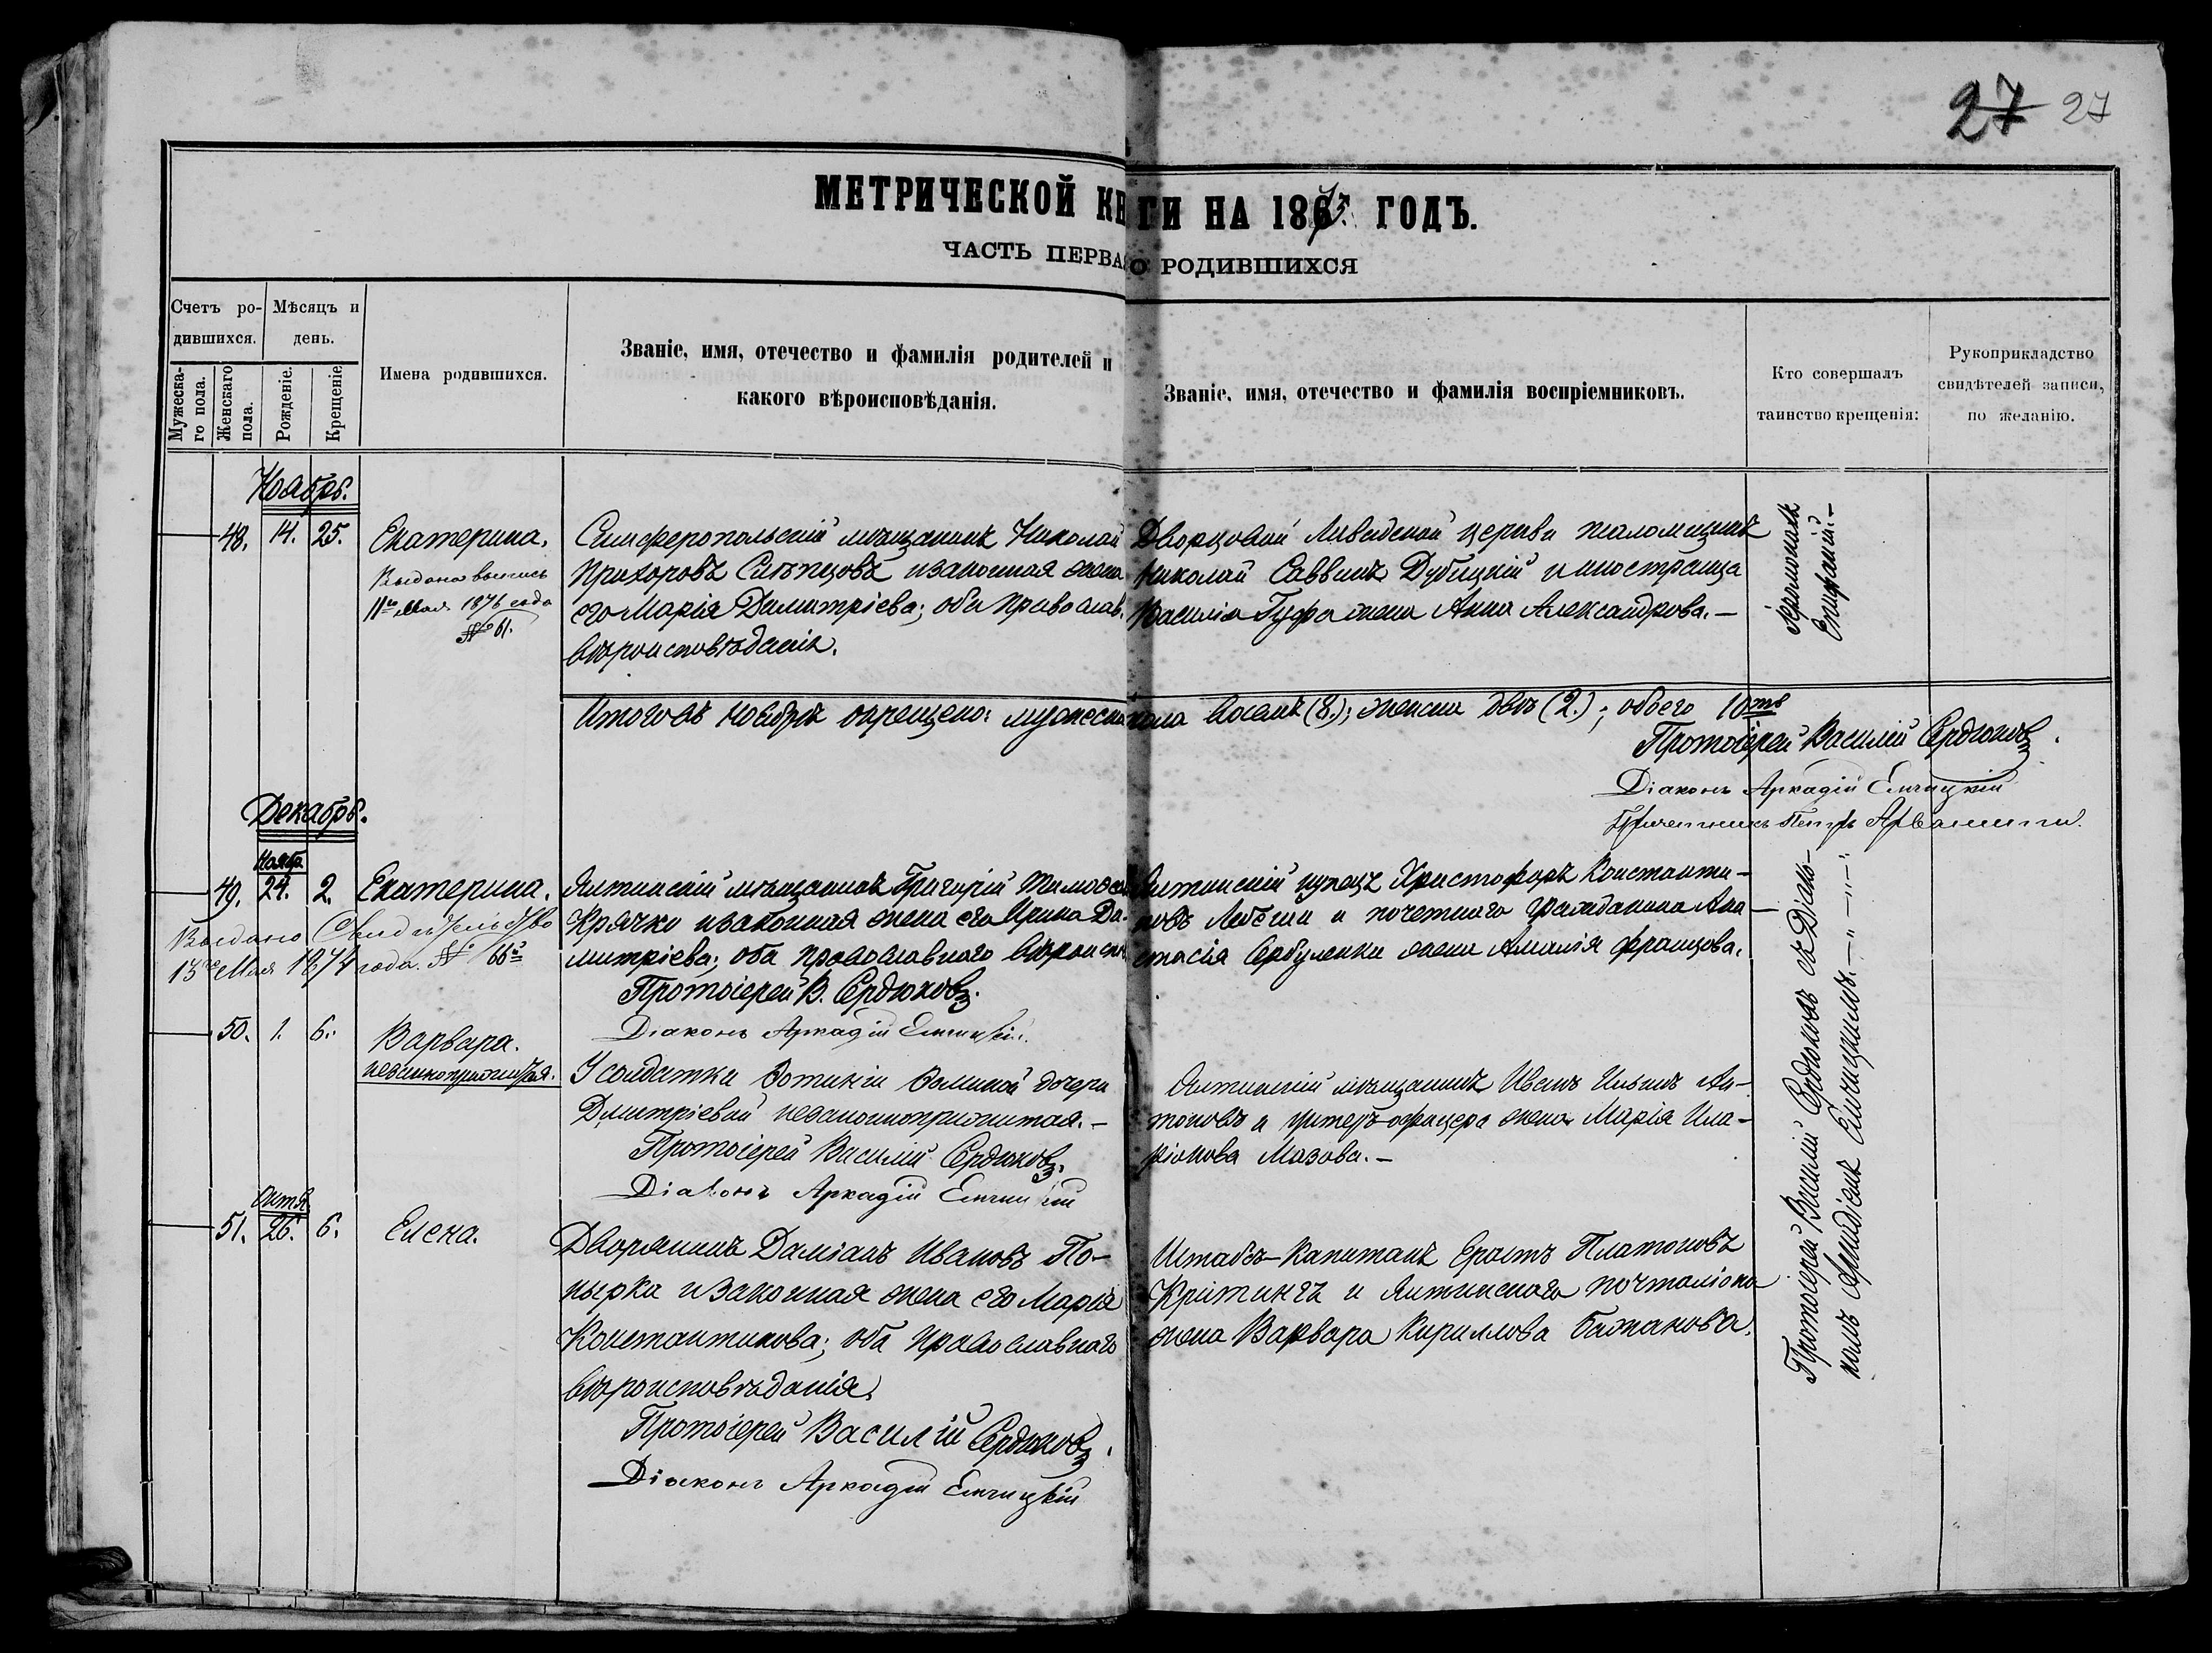 27 27
МЕТРИЧЕСКОЙ КН ГИ НА 187 ГОДЪ.
ЧАСТЬ ПЕРВАЯ О РОДИВШИХСЯ
Счетъ родившихся.
Мужеска-
го пола.
Женскаго
пола.
Мѣсяцъ и
день.
Рожденіе.
Крещеніе
Имена родившихся.
Званіе, имя, отечество и фамилія родителей и
какого вѣроисповѣданія.
Званіе, имя, отечество и фамилія воспріемниковъ.
Кто совершалъ
таинство крещенія:
Рукоприкладство
свидѣтелей записи,
по желанію.
Ноябрь.
48. 14. 25. Екатерина.
Выдана выпись
11го Мая 1876 года
№ 61.
Симферопольскій мѣщанинъ Николай
Прихоровъ Слѣпцовъ и законная жена
его Марія Димитріева; оба православ.
вѣроисповѣданія.
Дворцовой Ливадской церкви псаломщикъ
Николай Саввичъ Дубицкій и иностранца
Василія Гуфа жена Анна Александрова.—
Іеромонахъ
Епифаній.—
Итого въ ноябрѣ окрещено: мужеска пола восемь (8.); женска двѣ (2.); обоего 10ть
Протоіерей Василій Сердюковъ.
Діаконъ Аркадій Емчицкій
Причетникъ Петръ
Декабрь.
Ноябр.
49. 24. 2. Екатерина.
Выдано Свидѣтельство
13го Мая 1874 года. № 66й
Ялтинскій мѣщанинъ Григорій Тимоѳе
Крячко и законная жена его Ирина Ди-
митріева; оба православнаго вѣроисп
Протоіерей В. Сердюковъ.
Діаконъ Аркадій Емчицкій.
Ялтинскій купецъ Христофоръ Константи-
новъ и почетнаго гражданина Ана-
стасія Сербуленки жена Амалія Францова.
50. 1. 6. Варвара.
незаконноприжитая.
У солдатки Фотиніи дочери
Дмитріевой незаконноприжитая.—
Протоіерей Василій Сердюковъ.
Діаконъ Аркадій Емчицкій
Ялтинскій мѣщанинъ Иванъ Ильинъ Ан-
тоновъ и унтеръ-офицера жена Марія Ила-
ріонова Мазова.—
Октяб.
51. 26. 6. Елена.
Дворянинъ Даміанъ Ивановъ По-
пырка и законная жена его Марія
Константинова; оба православнаго
вѣроисповѣданія.
Протоіерей Василій Сердюковъ.
Діаконъ Аркадій Емчицкій
Штабъ-Капитанъ Ерастъ Платоновъ
и Ялтинскаго почталіона
жена Варвара Кириллова Бажанова.
Протоіерей Василій Сердюковъ съ Діако-
номъ Аркадіемъ Емчицкимъ.—